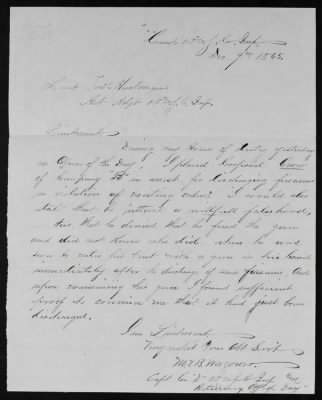 Dec 9th 1865.
Lieut
Act Adjt
Lieutenant,
During my tour of duty yesterday
as Officer of the Day I placed Corporal
of Company "B" in arrest, for discharging firearms
in violation of existing orders. I would also
state that he uttered a willful falsehood,
that he denied that he fired the gun
and did not know who did, when he was
seen to enter his tent with a gun in his hand
immediately after the discharge of said firearms. And
upon examining his gun I found sufficient
proof to convince me that it had just been
discharged.
I am Lieutenant,
Very respct Your Obt Servt
Wagoner
Capt Co
Retiring Off of Day"